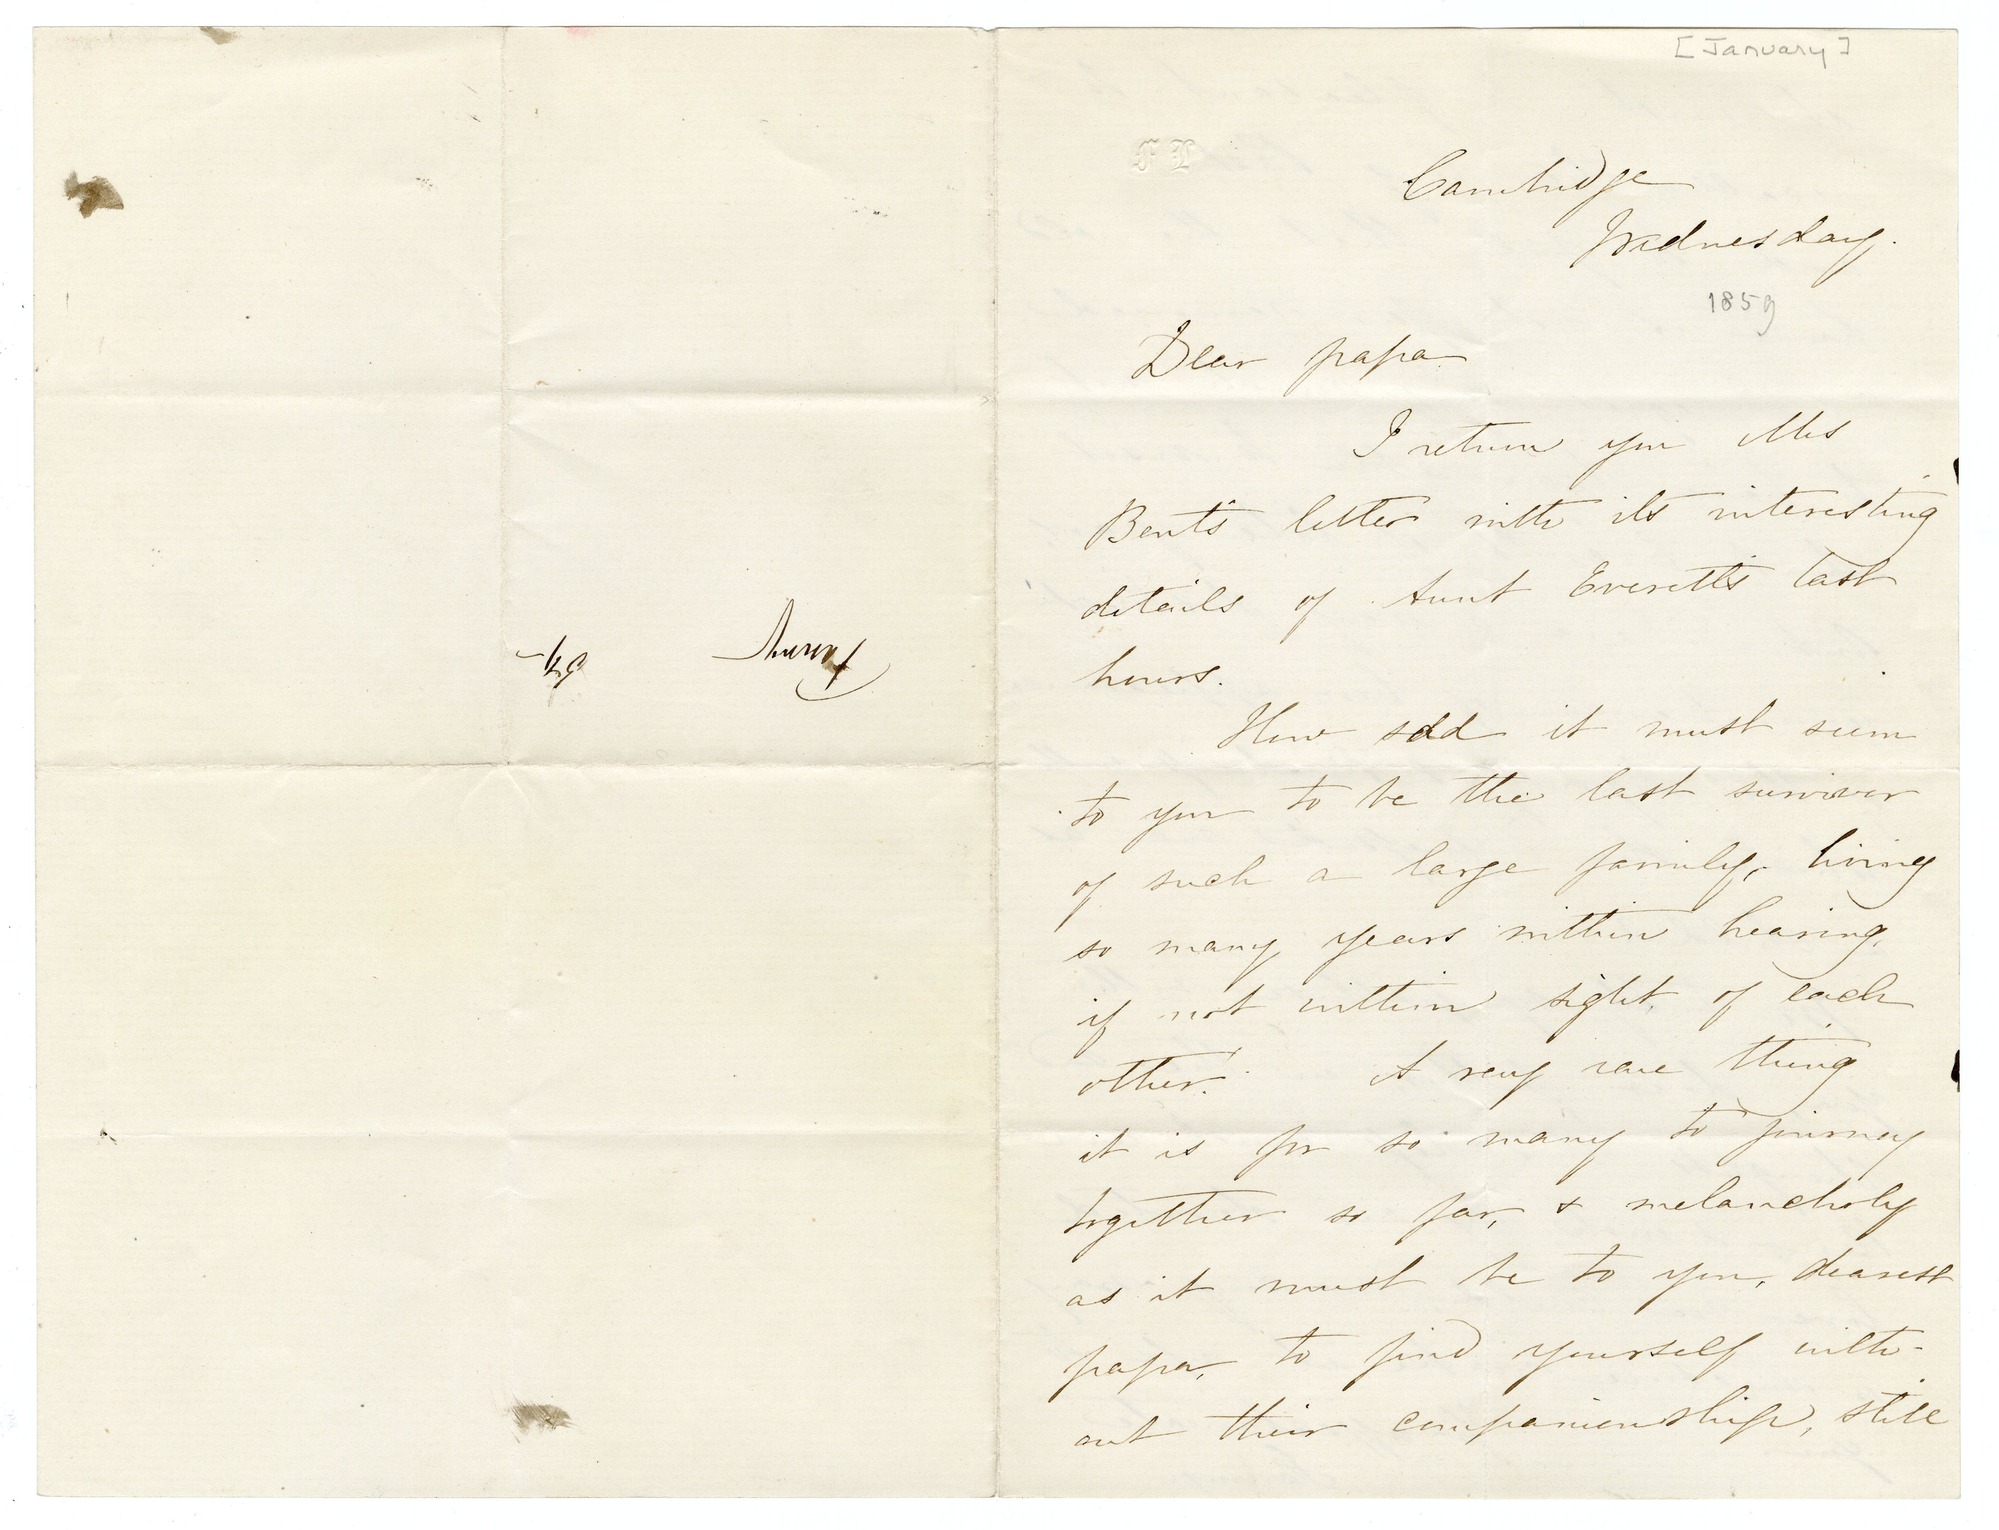 [January]
Cambridge
Wednesday.
1859
Dear papa
I return you Mrs
Bent's letter with its interesting
details of Aunt Everett's last
hours.
How sad it must seem
to you to be the last surviver
of such a large family, living
so many years within hearing,
if not within sight, of each
other! A very rare thing
it is for so many to journey
together so far, & melancholy
as it must be to you, dearest
papa, to find yourself with-
out their companionship, still
Fanny
59